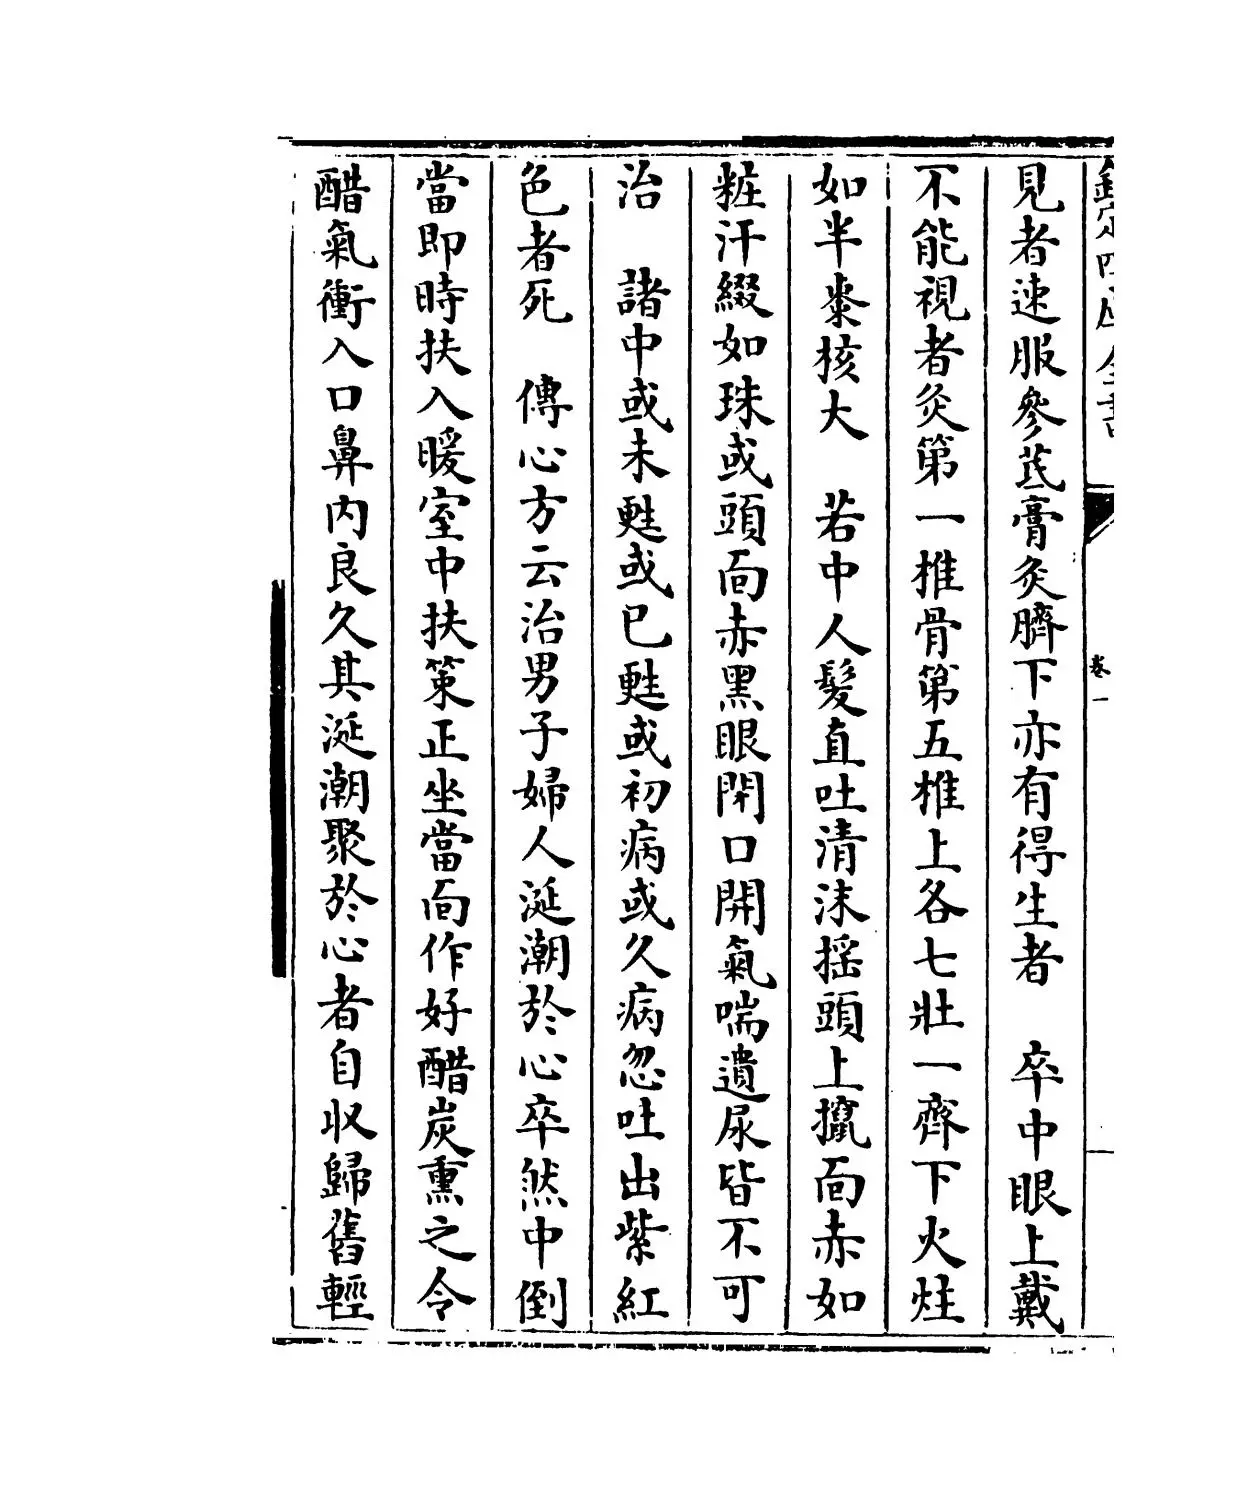 欽定四庫全書
卷一
見者速服參芪膏灸臍下亦有得生者　卒中眼上戴
不能視者灸第一椎骨第五椎上各七壯一齊下火炷
如半棗核大　若中人髮直吐清沫摇頭上攛面赤如
粧汗綴如珠或頭面赤黑眼閉口開氣喘遺尿皆不可
治　諸中或未甦或已甦或初病或久病忽吐出紫紅
色者死　傳心方云治男子婦人涎潮於心卒然中倒
當即時扶入暖室中扶策正坐當面作好醋炭熏之令
醋氣衝入口鼻内良久其涎潮聚於心者自収歸舊輕